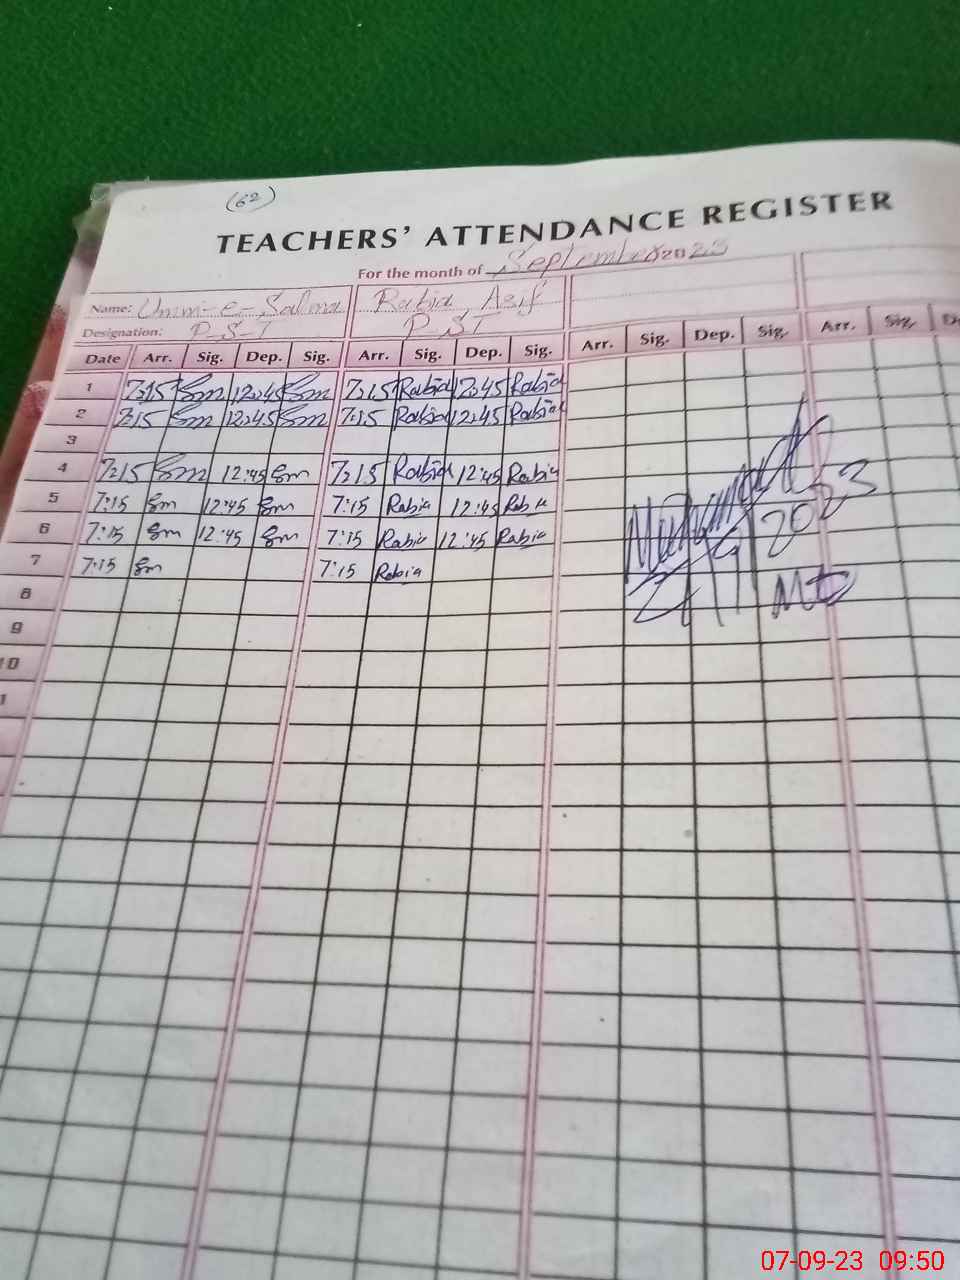 (62)
TEACHERS' ATTENDANCE REGISTER
For the month of September 2023
Name: Umm-e-Salma Rabia Asif
Designation: P.S.T PST
Date Arr. Sig. Dep. Sig. Arr. Sig. Dep. Sig. Arr. Sig. Dep. Sig. Arr. Sig.
1 7:15 Sm 12:45 Sm 7:15 Rabia 12:45 Rabia
2 7:15 Sm 12:45 Sm 7:15 Rabia 12:45 Rabia
3
4 7:15 Sm 12:45 Sm 7:15 Rabia 12:45 Rabia
5 7:15 Sm 12:45 Sm 7:15 Rabia 12:45 Rabia
6 7:15 Sm 12:45 Sm 7:15 Rabia 12:45 Rabia
7 7:15 Sm 7:15 Rabia
8
9
10
07-09-23 09:50